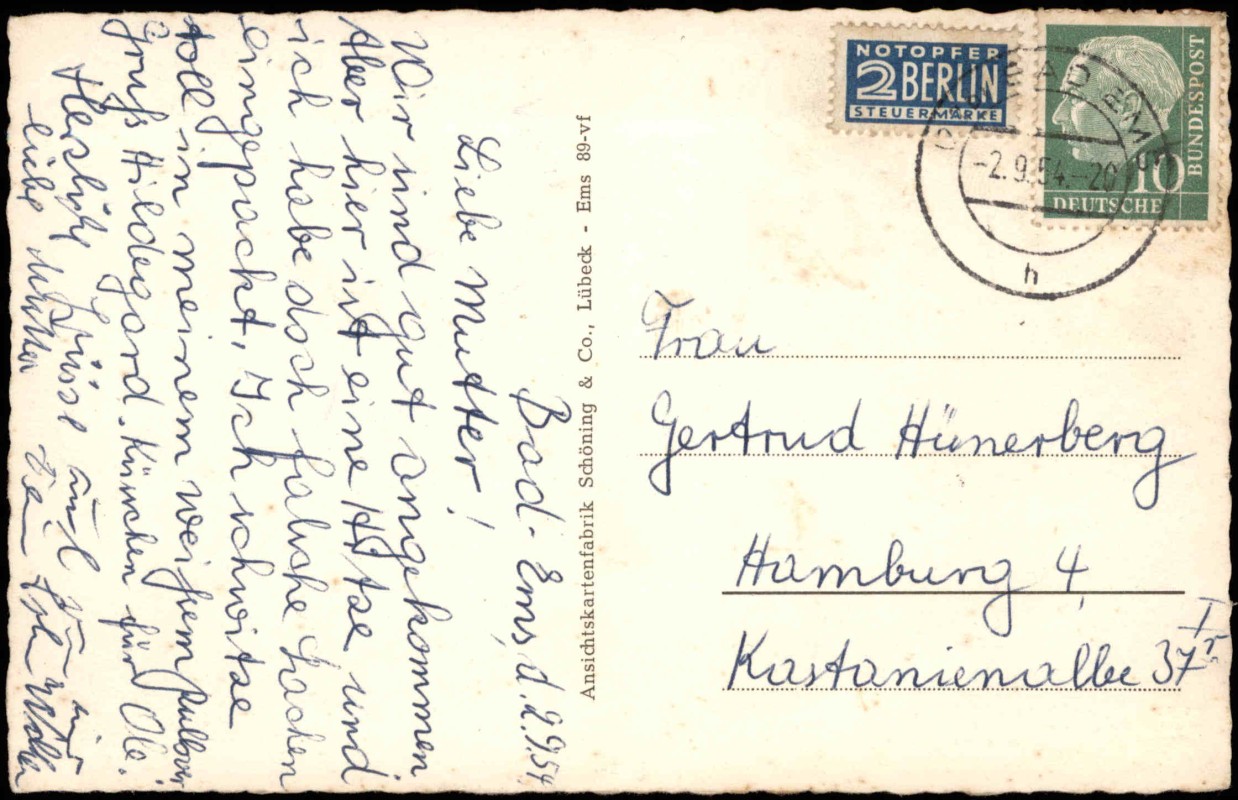 Bad-Ems, d. 2.9.54
Liebe Mutter!
Wir sind gut angekommen
Aber hier ist eine Hitze und
ich habe doch falsche Sachen
eingepackt, Ich schwitze
toll in meinem weißem Pullover
Gruß Hildegard. Küsschen für Ole.
Herzliche Grüsse auch von mir
liebe Mutter
Ansichtskartenfabrik Schöning & Co., Lübeck - Ems 89-vf
NOTOPFER
2 BERLIN
STEUERMARKE
BAD EMS
-2.9.54.-20
h
10
DEUTSCHE
BUNDESPOST
Frau
Gertrud Hünerberg
Hamburg 4
Kastanienallee 37